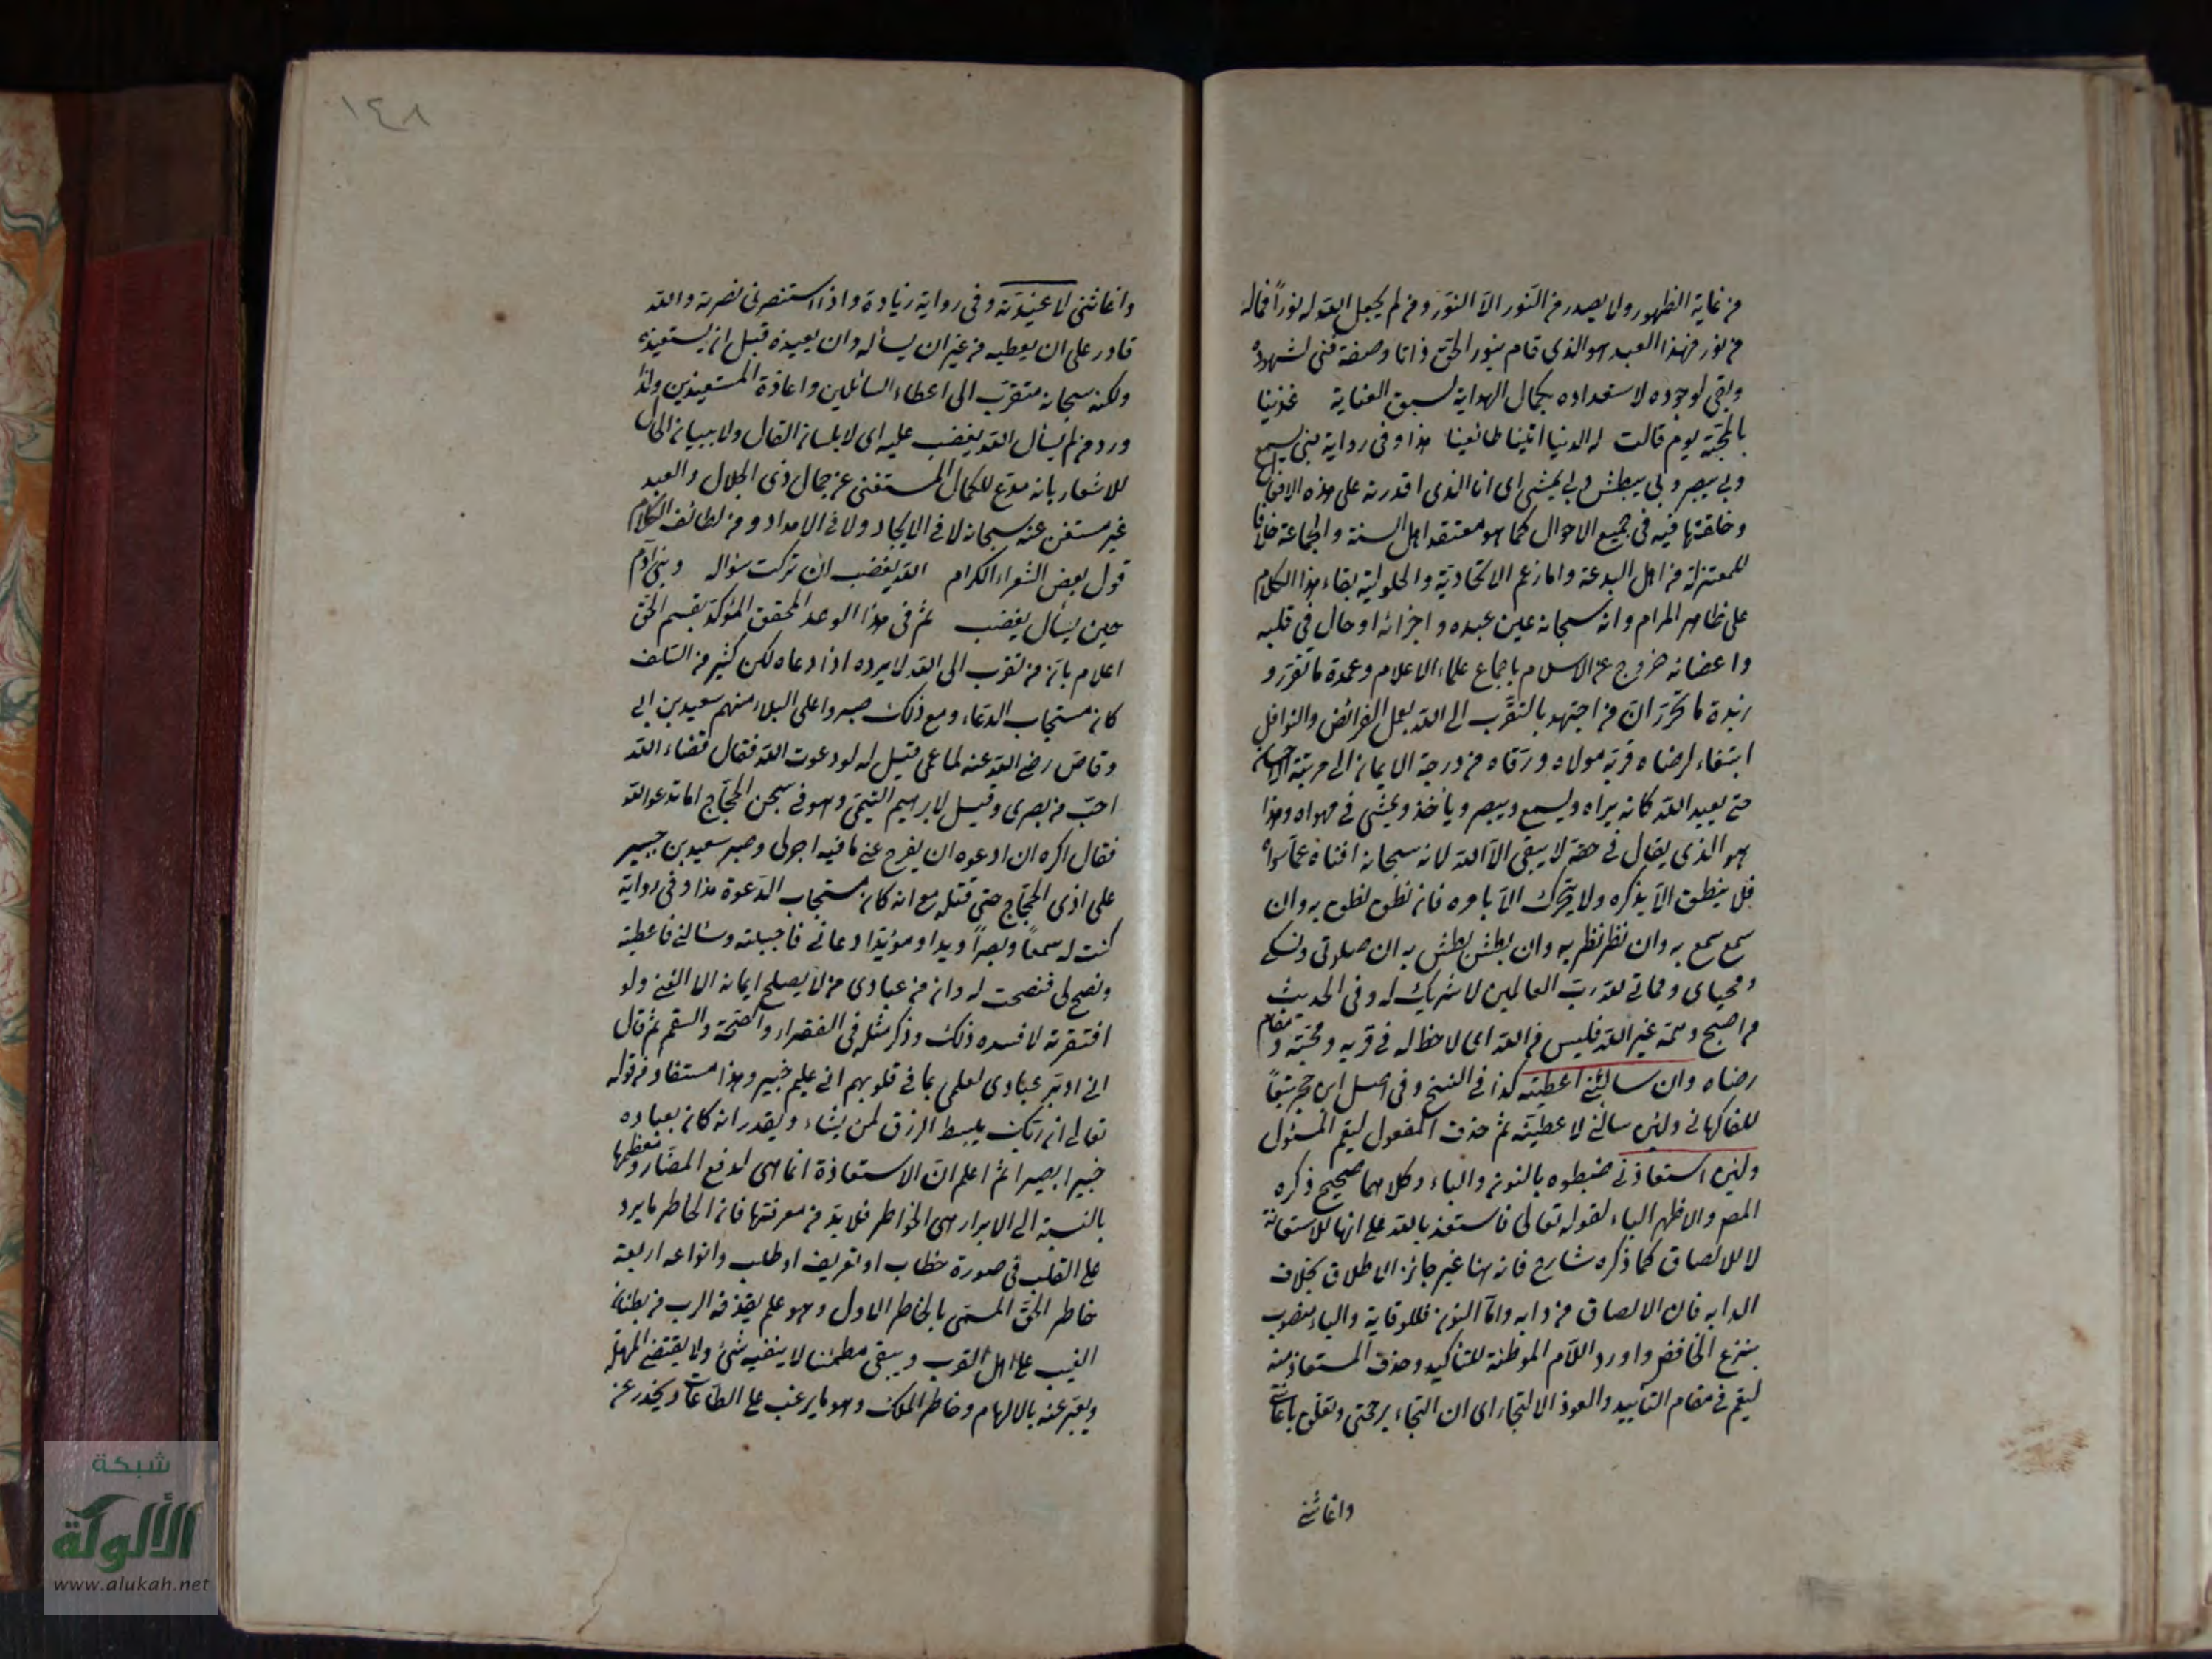 من غاية الظهور ولا يصدر من النور الا النور ومن لم يجعل الله له نورا فما له
من نور فهذا العبد هو الذي قام بنور الحق ذاتا وصفة فنى لشهوده
وبقي لوجوده لاستعداده بكمال الهداية لسبق العناية غذينا
بالمحبة يوم قالت له الدنيا اتينا طائعينا هذا وفي رواية فبي يسمع
وبي يبصر وبي يبطش وبي يمشي اى انا الذى اقدرته على هذه الافعال
وخلقتها فيه في جميع الاحوال كما هو معتقد اهل السنة والجماعة خلافا
للمعتزلة من اهل البدعة واما زعم الاتحادية والحلولية بقاء هذا الكلام
على ظاهر المرام وانه سبحانه عين عبده واجزائه او حال في قلبه
واعضائه خروج عن الاسلام باجماع علماء الاعلام وعمدة ما تقرر و
زبدة ما تحرر ان من اجتهد بالتقرب الى الله بعمل الفرائض والنوافل
ابتغاء لرضاه قربه مولاه ورقاه من درجة الايمان الى مرتبة الاحسان
حتى يعبد الله كانه يراه ويسمع ويبصر وياخذ ويمشي في مهواه وهذا
هو الذي يقال في حقه لا يبقى الا الله لانه سبحانه افناه عما سواه
فلا ينطق الا بذكره ولا يتحرك الا بامره فان نطق نطق به وان
سمع سمع به وان نظر نظر به وان بطش بطش به ان صلوتي ونسكي
ومحياى ومماتي لله رب العالمين لا شريك له وفي الحديث
من اصبح وهمه غير الله فليس من الله اى لا حظ له في قربه ومحبته ومقام
رضاه وان سالني اعطيته كذا في النسخ وفي اصل ابن حجر تبعا
للفاكهاني ولئن سالني لاعطيته ثم حذف المفعول ليعم المسئول
ولئن استعاذني ضبطوه بالنون والباء وكلاهما صحيح ذكره
المص والاظهر الباء لقوله تعالى فاستعذ بالله على انها للاستعانة
لا للالصاق كما ذكره شارح فانه هنا غير جائز الاطلاق بخلاف
الدابه فان الالصاق من دابه واما النون فللوقاية والياء منصوب
بنزع الخافض واورد اللام الموطئة للتاكيد وحذف المستعاذ منه
ليعم في مقام التأييد والعوذ الالتجاء اى ان التجاء برحمتي وتعلق باعانتي
واغاثتي
١٤٨
واغاثتي لاعيذنه وفي رواية زيادة واذا استنصرني نصرته والله
قادر على ان يعطيه من غير ان يسأله وان يعيذه قبل ان يستعيذه
ولكنه سبحانه متقرب الى اعطاء السائلين واعاذة المستعيذين ولذا
ورد من لم يسأل الله يغضب عليه اى لا بلسان القال ولا ببيان الحال
للاشعار بانه مدع للكمال المستغني عن جمال ذى الجلال والعبد
غير مستغن عنه سبحانه لا في الايجاد ولا في الامداد ومن لطائف الكلام
قول بعض الشعراء الكرام الله يغضب ان تركت سؤاله وبني آدم
حين يسأل يغضب ثم في هذا الوعد المحقق المؤكد بقسم الحق
اعلام بان من تقرب الى الله لا يرده اذا دعاه لكن كثير من السلف
كان مستجاب الدعاء ومع ذلك صبروا على البلاء منهم سعيد بن ابي
وقاص رضي الله عنه لما عمي قيل له لو دعوت الله فقال قضاء الله
احب من بصرى وقيل لابرهيم التيمي وهو في سجن الحجاج اما تدعو الله
فقال اكره ان ادعوه ان يفرج عني ما فيه اجر لي وصبر سعيد بن جبير
على اذى الحجاج حتى قتله مع انه كان مستجاب الدعوة هذا وفي رواية
كنت له سمعا وبصرا ويدا ومؤيدا دعاني فاجبيته وسالني فاعطيته
ونصح لي فنصحت له وان من عبادى من لا يصلح ايمانه الا الغنى ولو
افتقرته لافسده ذلك وذكر مثله في الفقراء والصحة والسقم ثم قال
اني ادبر عبادى لعلمي بما في قلوبهم اني عليم خبير وهذا مستفاد من قوله
تعالى ان ربك يبسط الرزق لمن يشاء ويقدر انه كان بعباده
خبيرا بصيرا ثم اعلم ان الاستعاذة انما هي لدفع المضار ومعظمها
بالنسبة الى الابرار هي الخواطر فلا بد من معرفتها فان الخاطر ما يرد
على القلب في صورة خطاب او تعريف او طلب وانواعه اربعة
خاطر الحق المسمى بالخاطر الاول وهو علم يقذفه الرب من بطنان
الغيب على اهل القرب ويبقى مطمئنا لا ينفيه شئ ولا يقتضي المهلة
ويعبر عنه بالالهام وخاطر الملك وهو ما يرغب على الطاعات ويحذر عن
شبكة
الألوكة
www.alukah.net